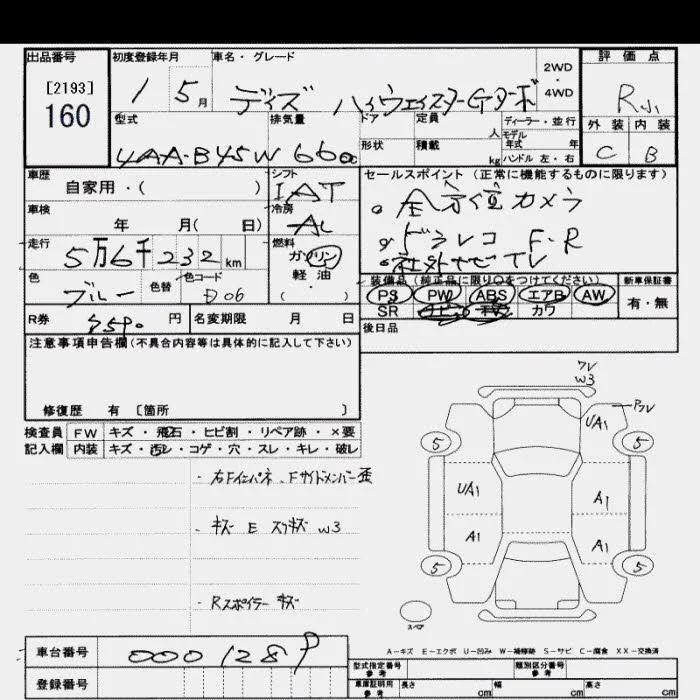 出品番号 初度登録年月 車名・グレード 2WD ・ 4WD 評価点
[2193]
160
1 5月 デイズ ハイウェイスターGターボ R小
型式 排気量 ドア 定員 人 ディーラー・並行 外装 内装
モデル年式 年
4AA-B45W 660cc 形状 積載 kg ハンドル 左・右 C B
車歴 シフト セールスポイント (正常に機能するものに限ります)
自家用・( ) IAT
。全方位カメラ
車検 冷房
年 月( 日) AC
・ドラレコ F・R
走行 燃料
5万6千232km ガソリン
・社外ナビTV
軽油
・( )
色 色替 色コード
ブルー
装備品(純正品に限り○をつけてください) 新車保証書
PS PW ABS エアB AW 有・無
SR ナビ TV カワ
R券 円 名変期限 月 日
後日品
注意事項申告欄(不具合内容等は具体的に記入して下さい)
修復歴 有 [箇所 ]
検査員 FW キズ・飛石・ヒビ割・リペア跡・×要
記入欄 内装 キズ・汚レ・コゲ・穴・スレ・キレ・破レ
・右Fインパネ、Fサイドメンバー歪
・キズ E スリキズ W3
・Rスポイラー キズ
ワレ
W3
UA1
5 5
UA1 A1
A1 A1
5 5
スペア
A-キズ E-エクボ U-凹み W-補修跡 S-サビ C-腐食 XX-交換済
車台番号 000128
型式指定番号 参考 類別区分番号 参考
登録番号 車庫証明用 参考 長さ cm 幅 cm 高さ cm